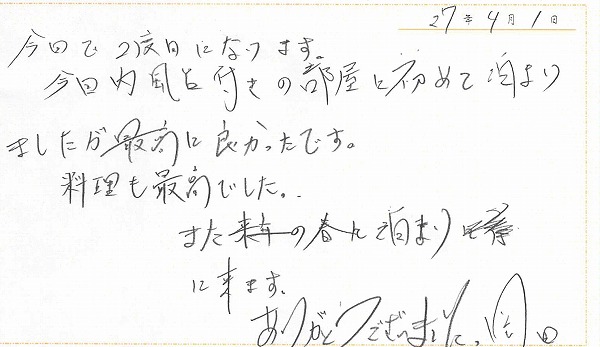 27年4月1日
今回で2度目になります。
今回内風呂付きの部屋に初めて泊まり
ましたが最高に良かったです。
料理も最高でした。
また来年の春に泊まり
に来ます。
ありがとうございました。